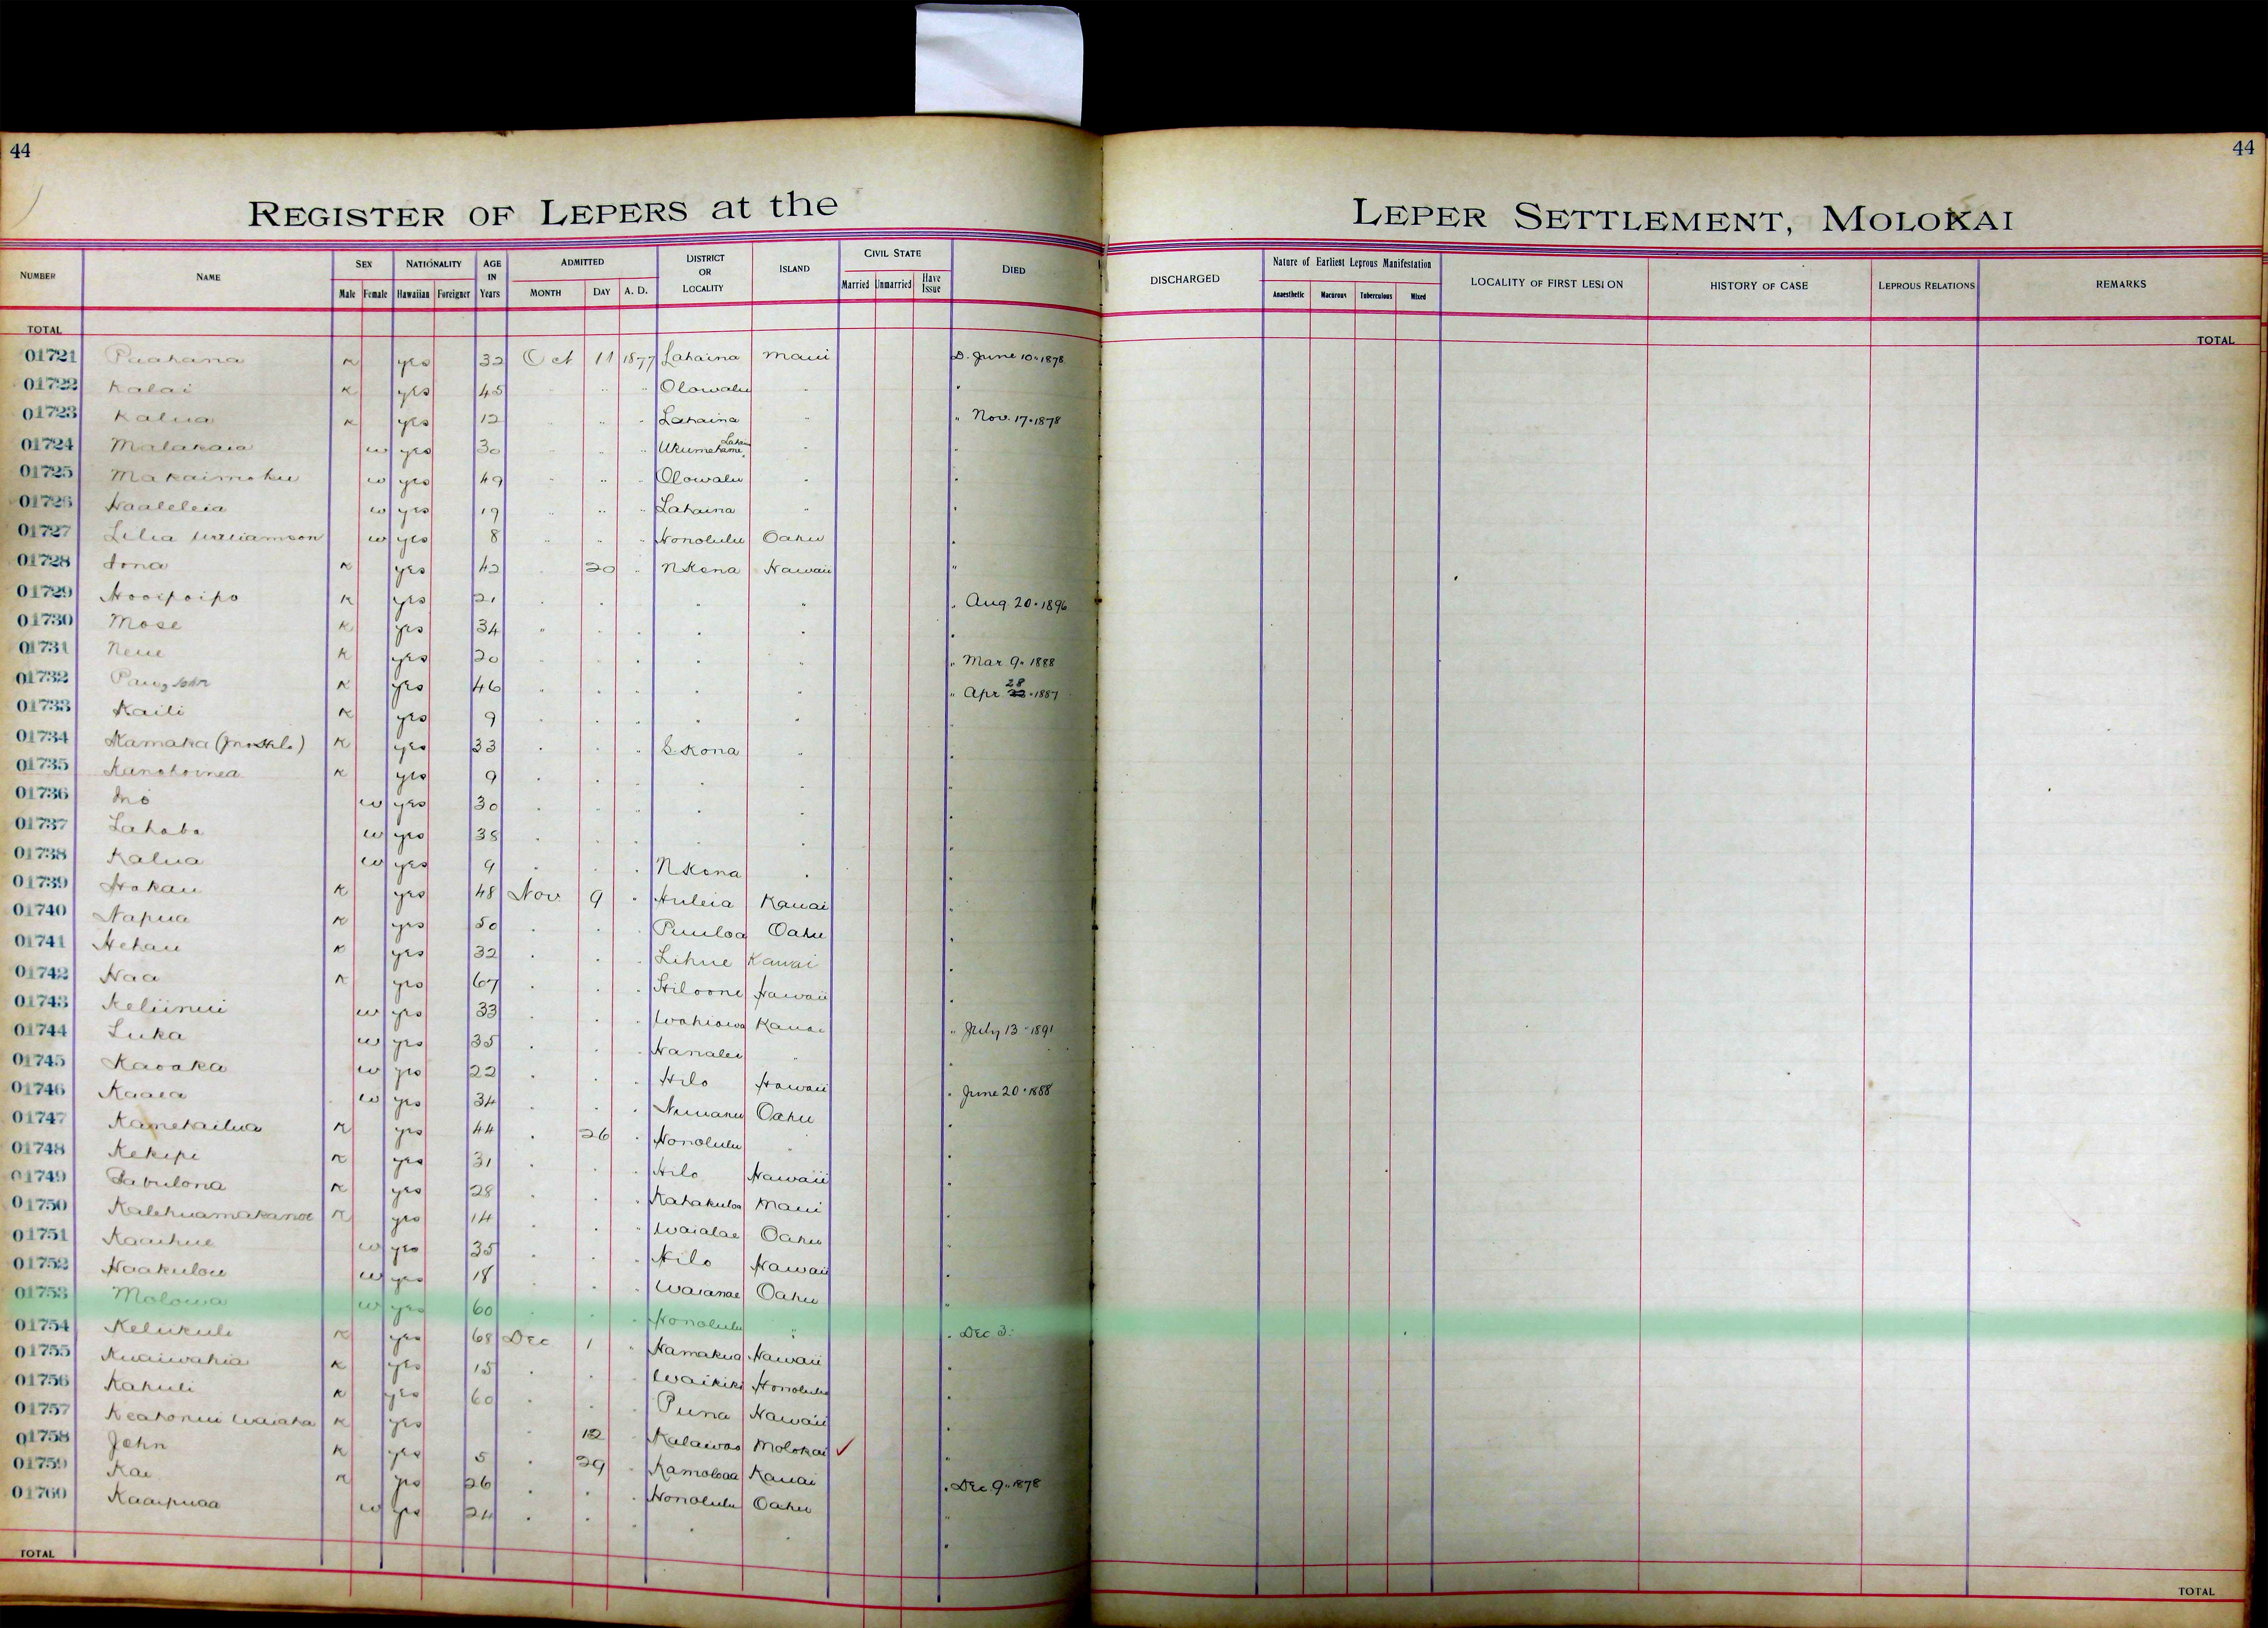 44
44
REGISTER OF LEPERS at the LEPER SETTLEMENT, MOLOKAI
NUMBER NAME SEX NATIONALITY AGE IN Years ADMITTED DISTRICT OR LOCALITY ISLAND CIVIL STATE DIED
Male Female Hawaiian Foreigner MONTH DAY A. D. Married Unmarried Have Issue
DISCHARGED Nature of Earliest Leprous Manifestation LOCALITY OF FIRST LESION HISTORY OF CASE LEPROUS RELATIONS REMARKS
Anaesthetic Macurous Tuberculous Mixed
TOTAL
TOTAL
01721 Puahana K yes 32 Oct 11 1877 Lahaina Maui D. June 10 " 1878
01722 Kalai K yes 45 " " " Olowalu " "
01723 Kalua K yes 12 " " " Lahaina " " Nov. 17 " 1878
01724 w yes 30 " " " Lahaina " "
01725 Makaimoku w yes 49 " " " Olowalu " "
01726 Haaleleia w yes 19 " " " Lahaina " "
01727 Lilia Williamson w yes 8 " " " Honolulu Oahu "
01728 Iona K yes 42 " 20 " N Kona Hawaii "
01729 Hooipoipo K yes 21 " " " " " " Aug. 20 " 1896
01730 Mose K yes 34 " " " " " "
01731 Neue K yes 20 " " " " " " Mar. 9 " 1888
01732 John K yes 46 " " " " " " Apr 28 " 1887
01733 Kaili K yes 9 " " " " " "
01734 Kamaka K yes 33 " " " S. Kona " "
01735 K yes 9 " " " " " "
01736 w yes 30 " " " " " "
01737 w yes 38 " " " " " "
01738 Kalua w yes 9 " " " N Kona " "
01739 Hokau K yes 48 Nov 9 " Huleia Kauai "
01740 Napua K yes 50 " " " Puuloa Oahu "
01741 Hehau K yes 32 " " " Lihue Kauai "
01742 Naa K yes 67 " " " Hiloone Hawaii "
01743 Keliinui w yes 33 " " " Wahiawa Kauai " July 13 " 1891
01744 Luka w yes 35 " " " Hanalei " "
01745 Kaoaka w yes 22 " " " Hilo Hawaii " June 20 " 1888
01746 Kaaea w yes 34 " " " Nuuanu Oahu "
01747 Kamekailua K yes 44 " 26 " Honolulu " "
01748 Kekipi K yes 31 " " " Hilo Hawaii "
01749 Zabulona K yes 28 " " " Kahakuloa Maui "
01750 Kalehuamakanoe K yes 14 " " " Waialae Oahu "
01751 Kaaihue w yes 35 " " " Hilo Hawaii "
01752 Haakulou w yes 18 " " " Waianae Oahu "
01753 Molowa w yes 60 " " " Honolulu " " Dec 3.
01754 Kelukule K yes 68 Dec 1 " Hamakua Hawaii "
01755 Kuaiwahia K yes 15 " " " Waikiki Honolulu "
01756 Kahuli K yes 60 " " " Puna Hawaii "
01757 K yes " 12 " Kalawao Molokai ✓ "
01758 John K yes 5 " 29 " Kamoloaa Kauai " Dec 9 " 1878
01759 Kae K yes 26 " " " Honolulu Oahu "
01760 Kaaipuaa w yes 24 " " " " " "
TOTAL
TOTAL